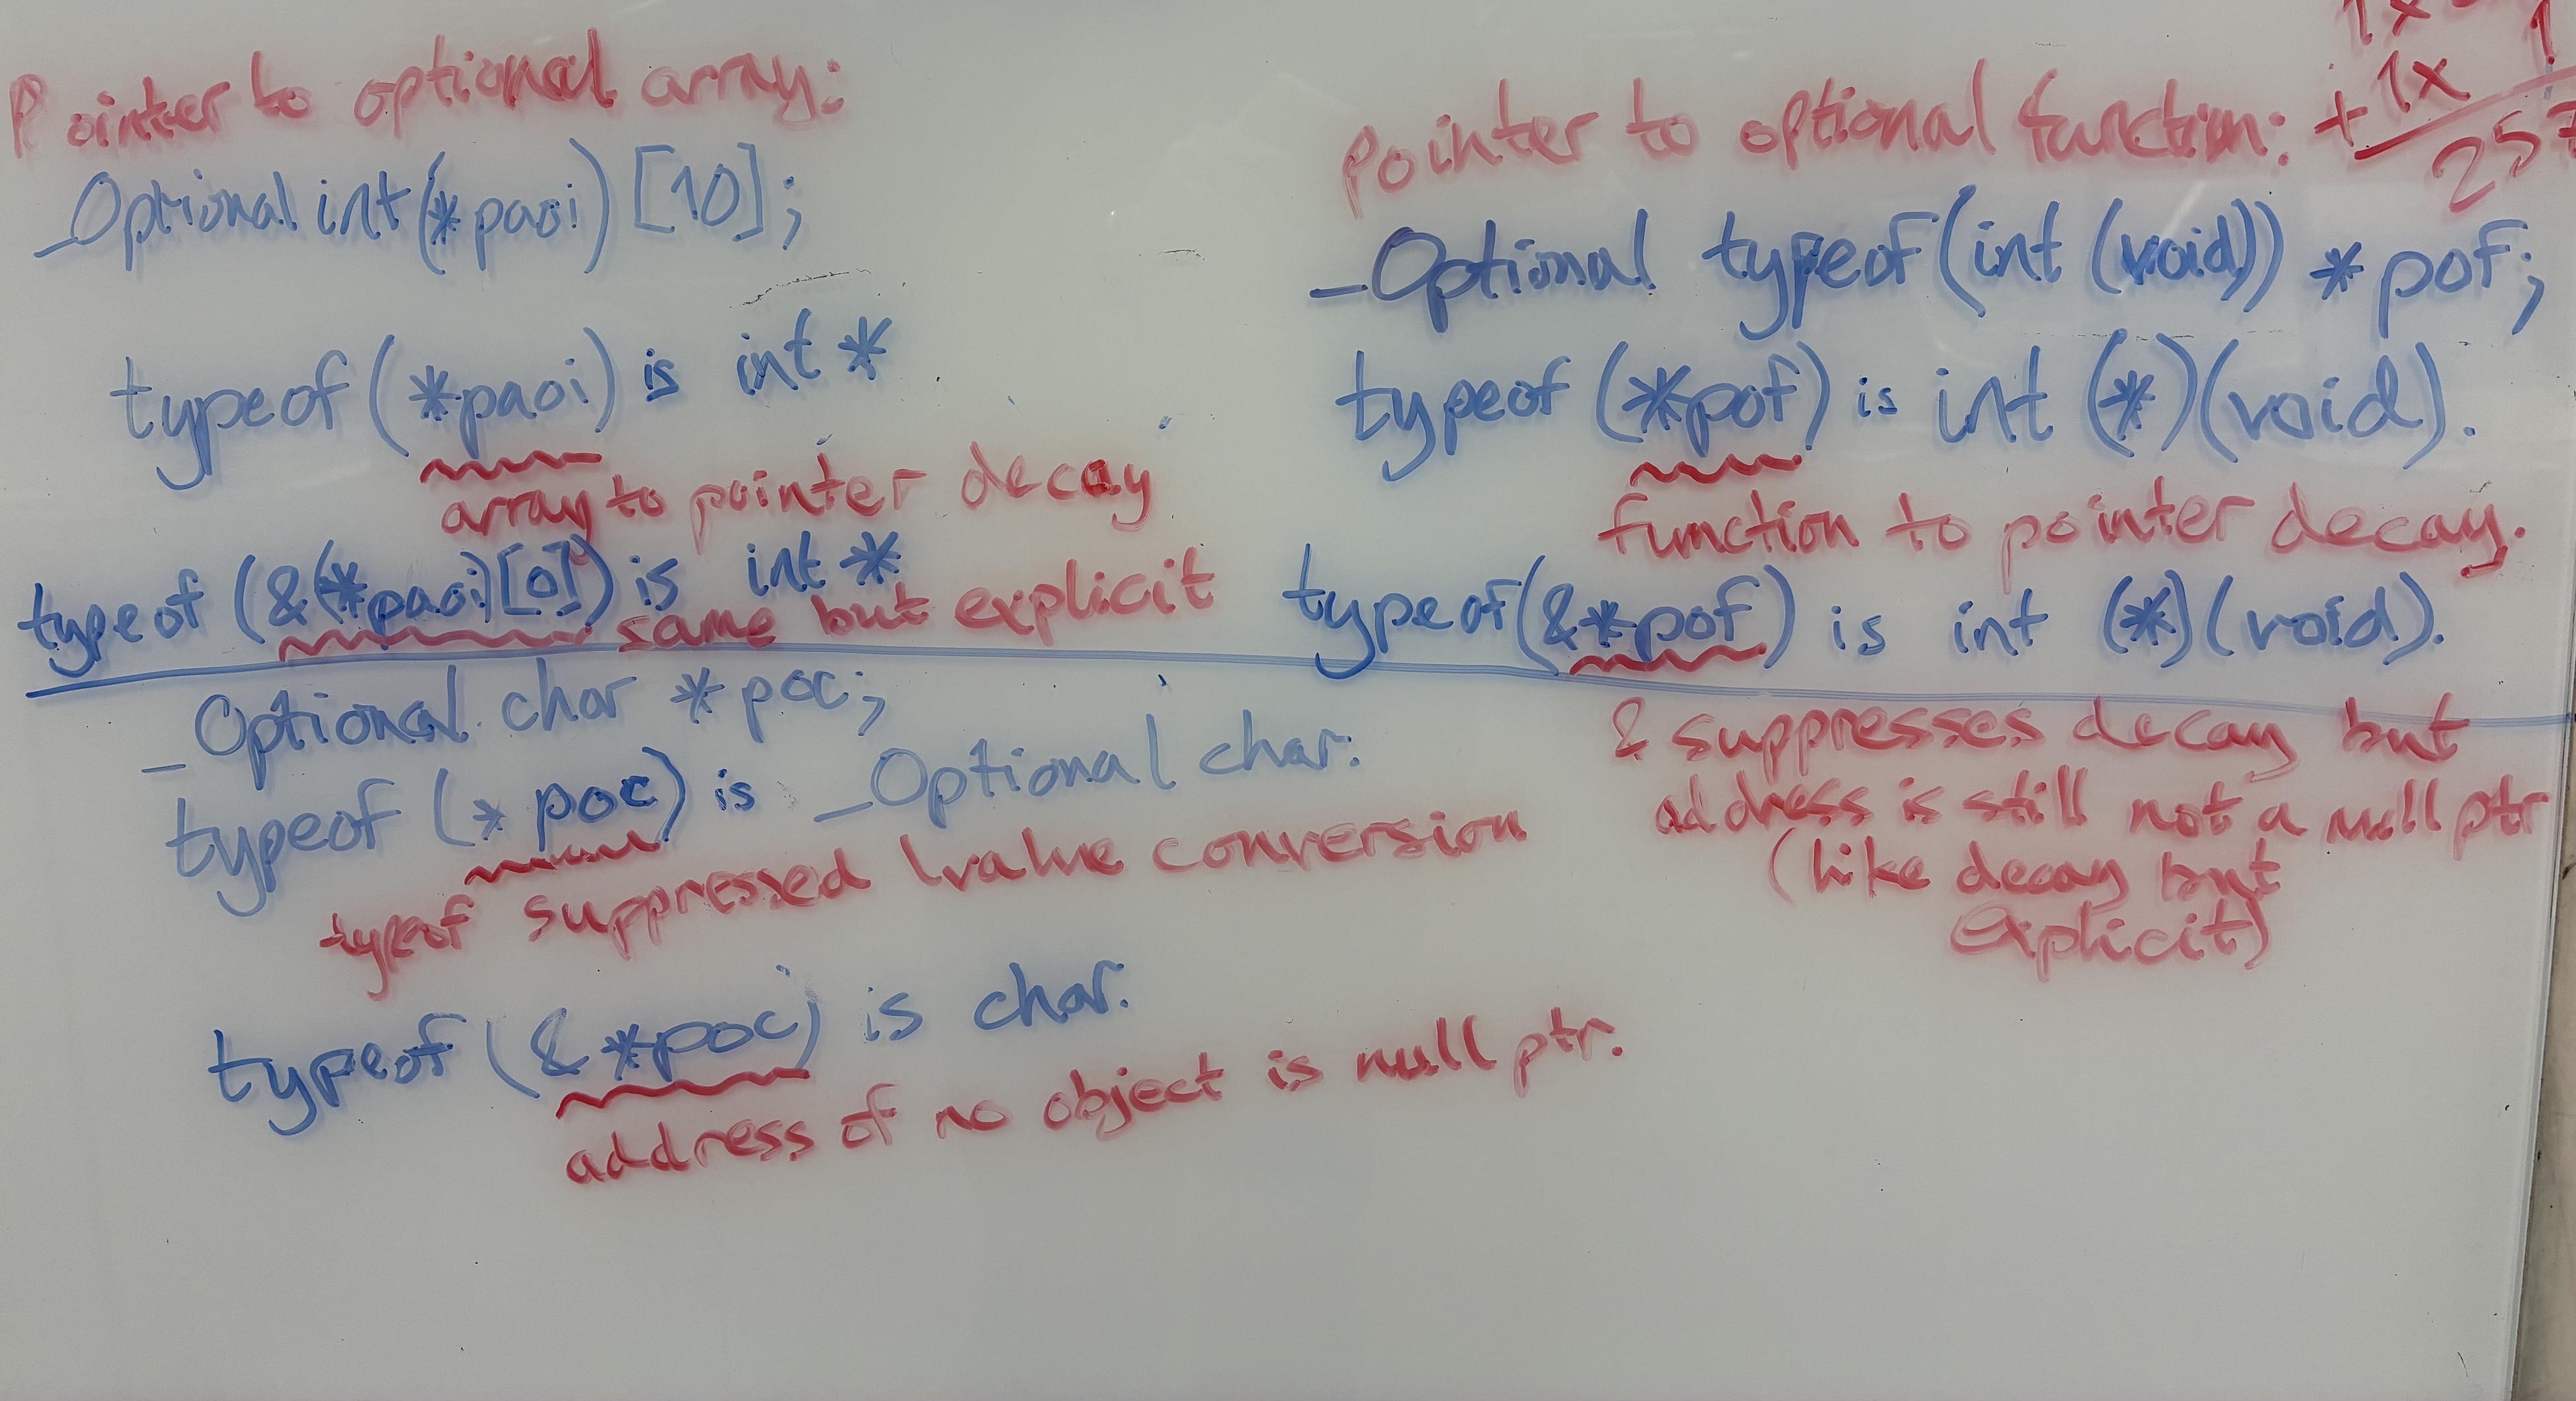 Pointer to optional array:
_Optional int (*paoi) [10];
typeof (*paoi) is int *
array to pointer decay
typeof (&(*paoi)[0]) is int *
same but explicit
_Optional char *poc;
typeof (*poc) is _Optional char.
typeof suppressed lvalue conversion
typeof (&*poc) is char.
address of no object is null ptr.
Pointer to optional function:
_Optional typeof (int (void)) *pof;
typeof (*pof) is int (*)(void).
function to pointer decay.
typeof (&*pof) is int (*)(void).
& suppresses decay but
address is still not a null ptr
(like decay but
explicit)
1x
+ 1x 1
257